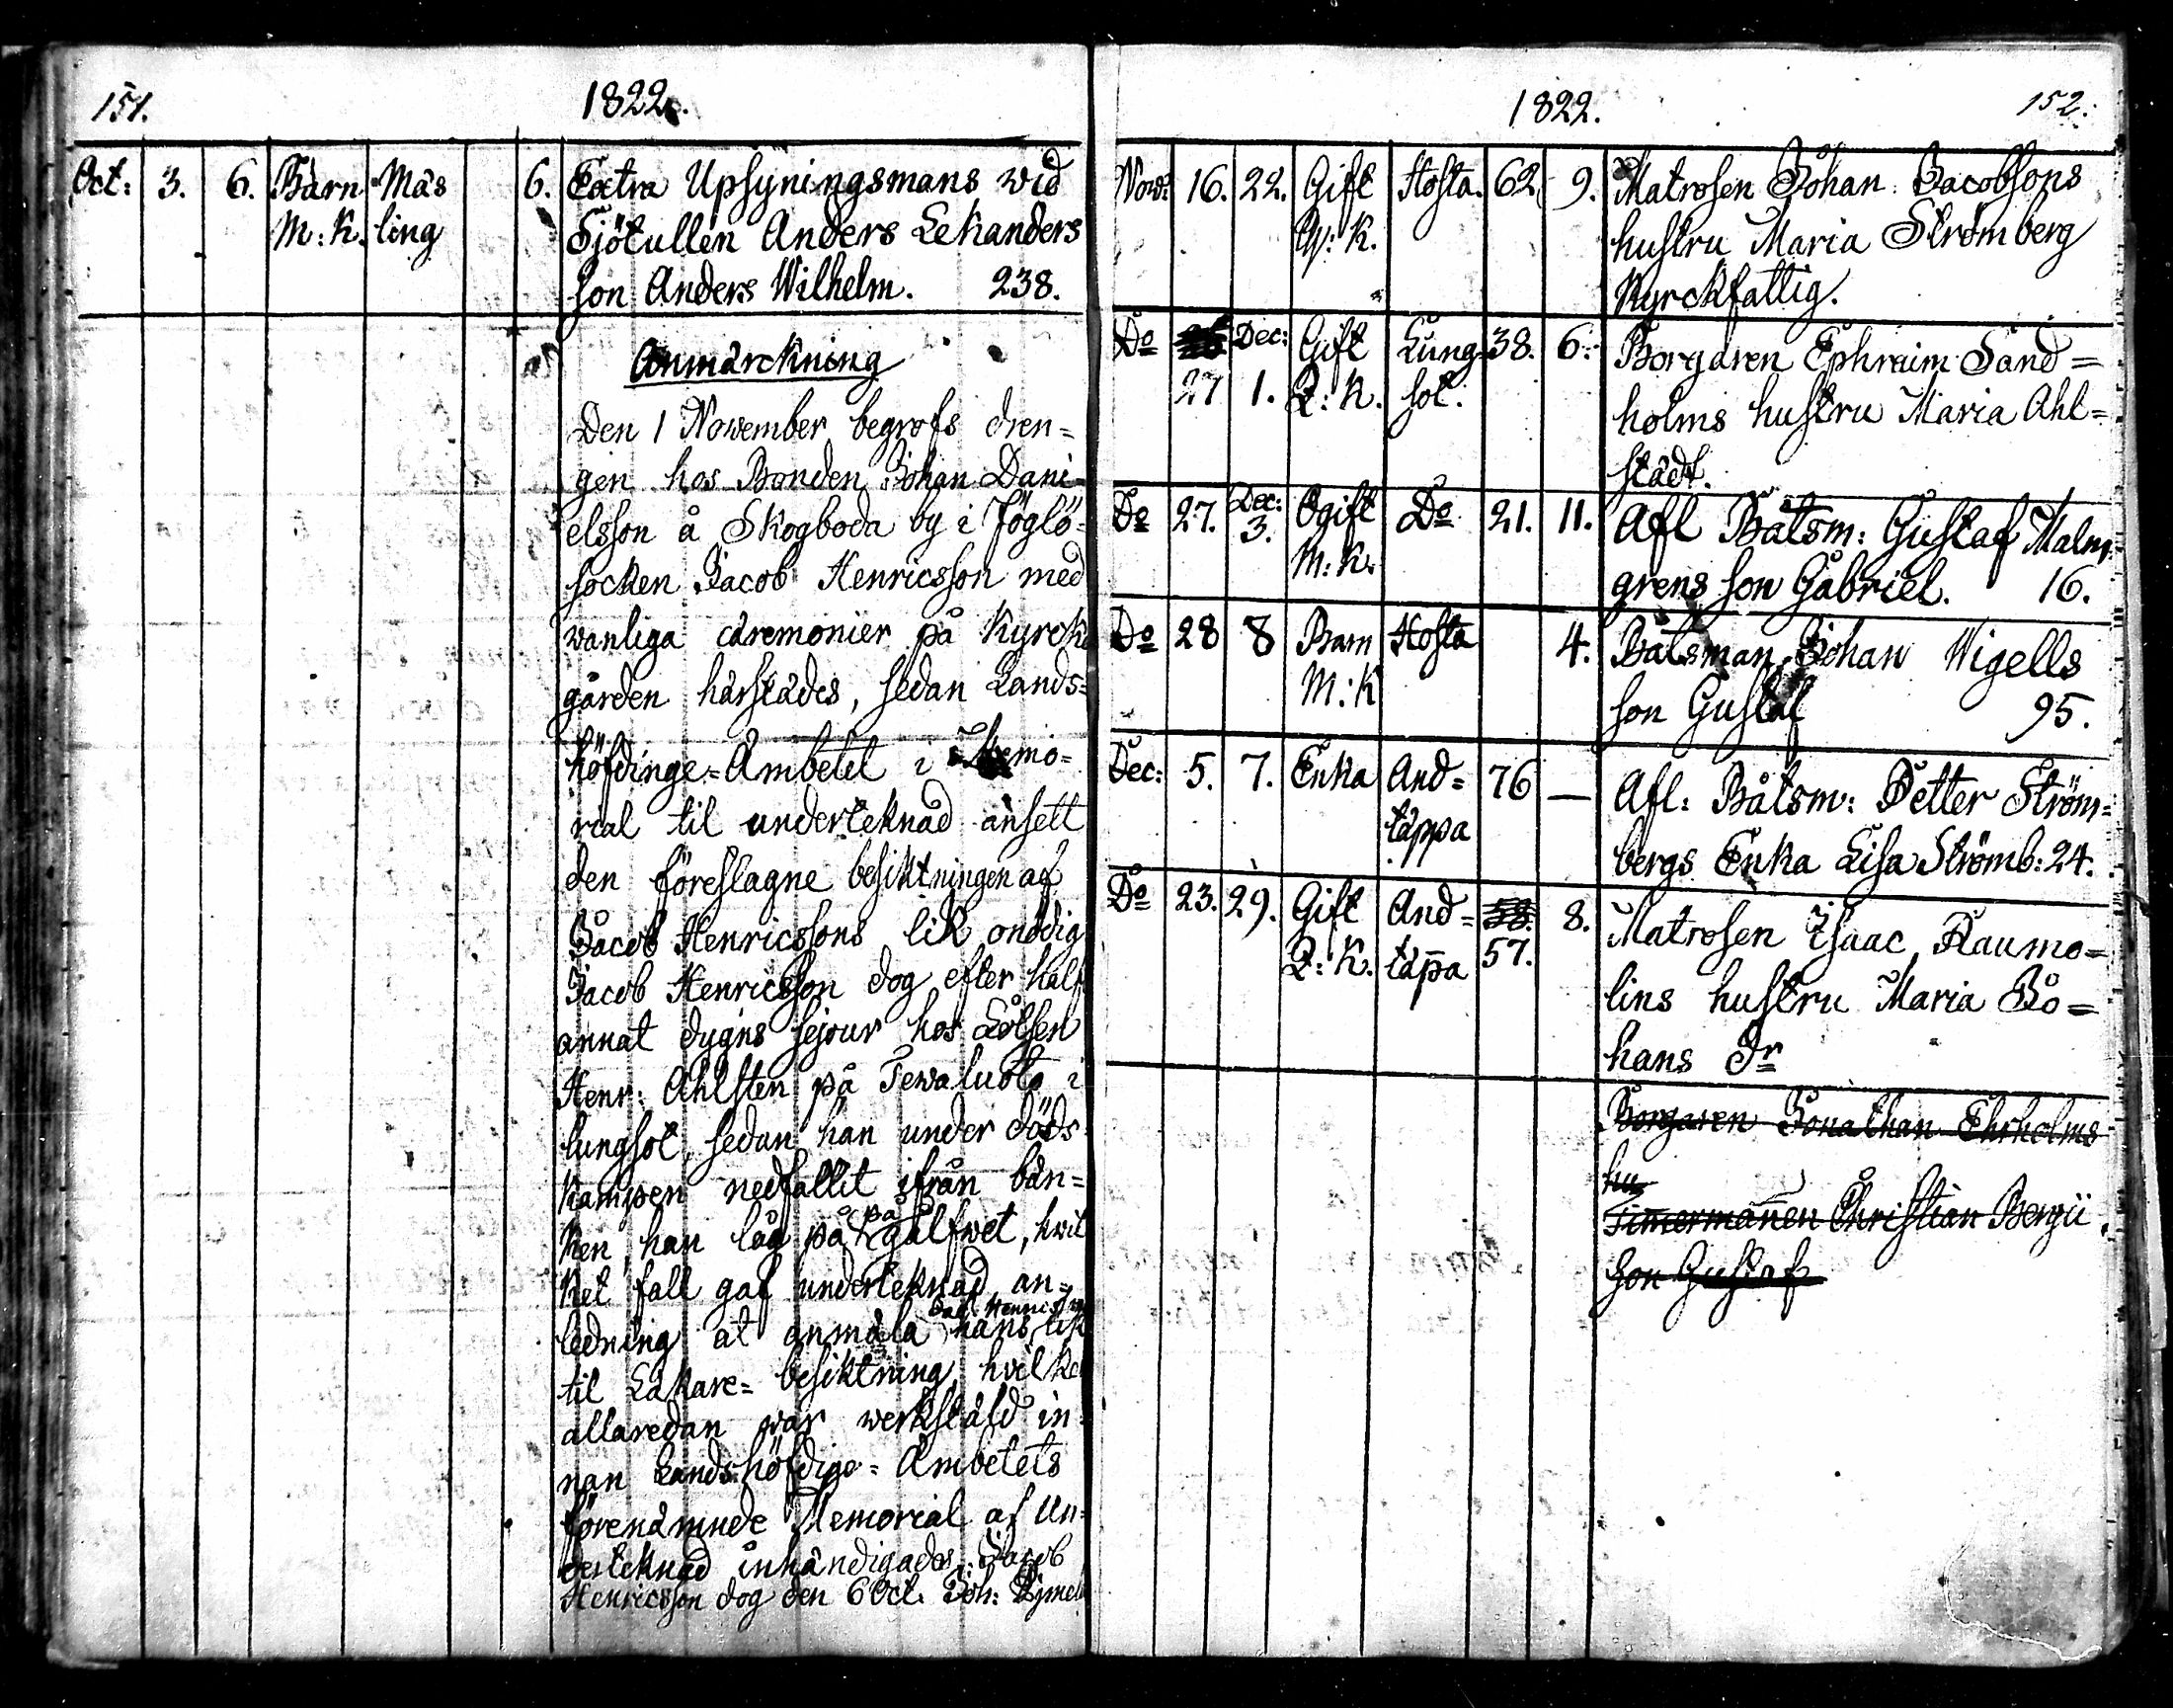 151.
1822.
Oct: 3. 6. Barn Mäs 6. Extra Upsyningsmans wid
M:K. ling Sjötullen Anders Lekanders
son Anders Wilhelm. 238.
Anmärckning
Den 1 November begrofs dren=
gen hos Bonden Johan Dani=
elsson å Skogboda by i Föglö=
socken Jacob Henricsson med
wanliga cäremonier på Kyrcko
gården härstädes, sedan Lands=
höfdinge=Ämbetet i Memo=
rial til underteknad ansett
den föreslagne besiktningen af
Jacob Henricssons lik onödig
Jacob Henricsson dog efter half
annat dygns sejour hos Lotsen
Henr: Ahlsten på Tewaluoto i
lungsot, sedan han under döds
kampen nedfallit ifrån bän=
ken, han låg på, på gålfwet, hwil
ket fall gaf underteknad an=
Jac: Henricss
ledning at anmäla hans lik
til Läkare= besiktning, hvilke
allaredan war werkstäld in=
nan Landshöfdige= Ämbetets
förenämnde Memorial af Un=
derteknad inhändigades. Jacob
Henricsson dog den 6 Oct. Joh:
1822.
152.
Nov: 16. 22. Gift Hosta. 62 9. Matrosen Johan Jacobsons
Q: K. hustru Maria Strömberg
Kyrckfattig.
Do Dec: Gift Lung= 38. 6. Borgaren Ephraim Sand=
27 1. Q: K. sot. holms hustru Maria Ahl=
städt.
Do 27. Dec: 3. Ogift Do 21. 11. Afl Båtsm: Gustaf Malm=
M: K. grens son Gabriel. 16.
Do 28 8 Barn Hosta 4. Båtsman Johan Wigells
M: K son Gustaf 95.
Dec: 5. 7. Enka And= 76 — Afl: Båtsm: Petter Ström=
täppa bergs Enka Lisa Strömb: 24.
Do 23. 29. Gift And= 58. 8. Matrosen Isaac Raumo=
Q: K. täpa 57. lins hustru Maria Jo=
hans Dr
Borgaren Jonathan Ehrholms
hu
Timermanen Christian Bergii
son Gustaf